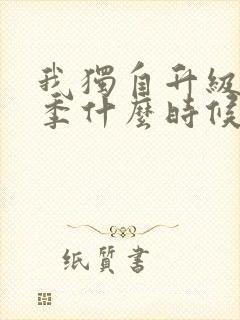 我獨自升級
季什麼時候
纸質書